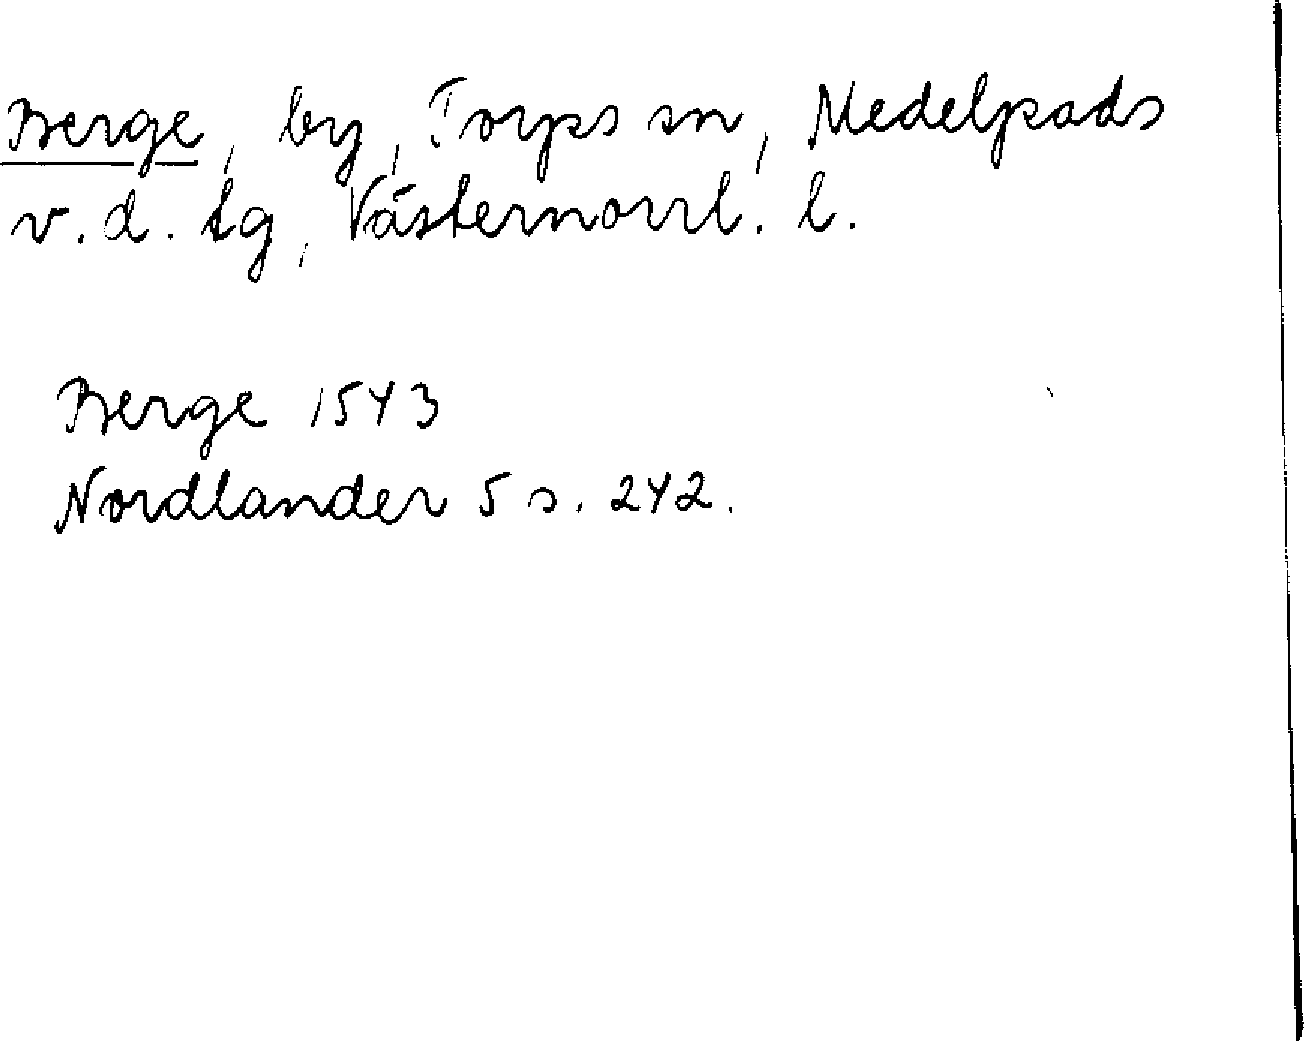 Berge, by, Torps sn, Medelpads
v. d. tg, Västernorrl. l.
Berge 1543
Nordlander 5 s. 242.